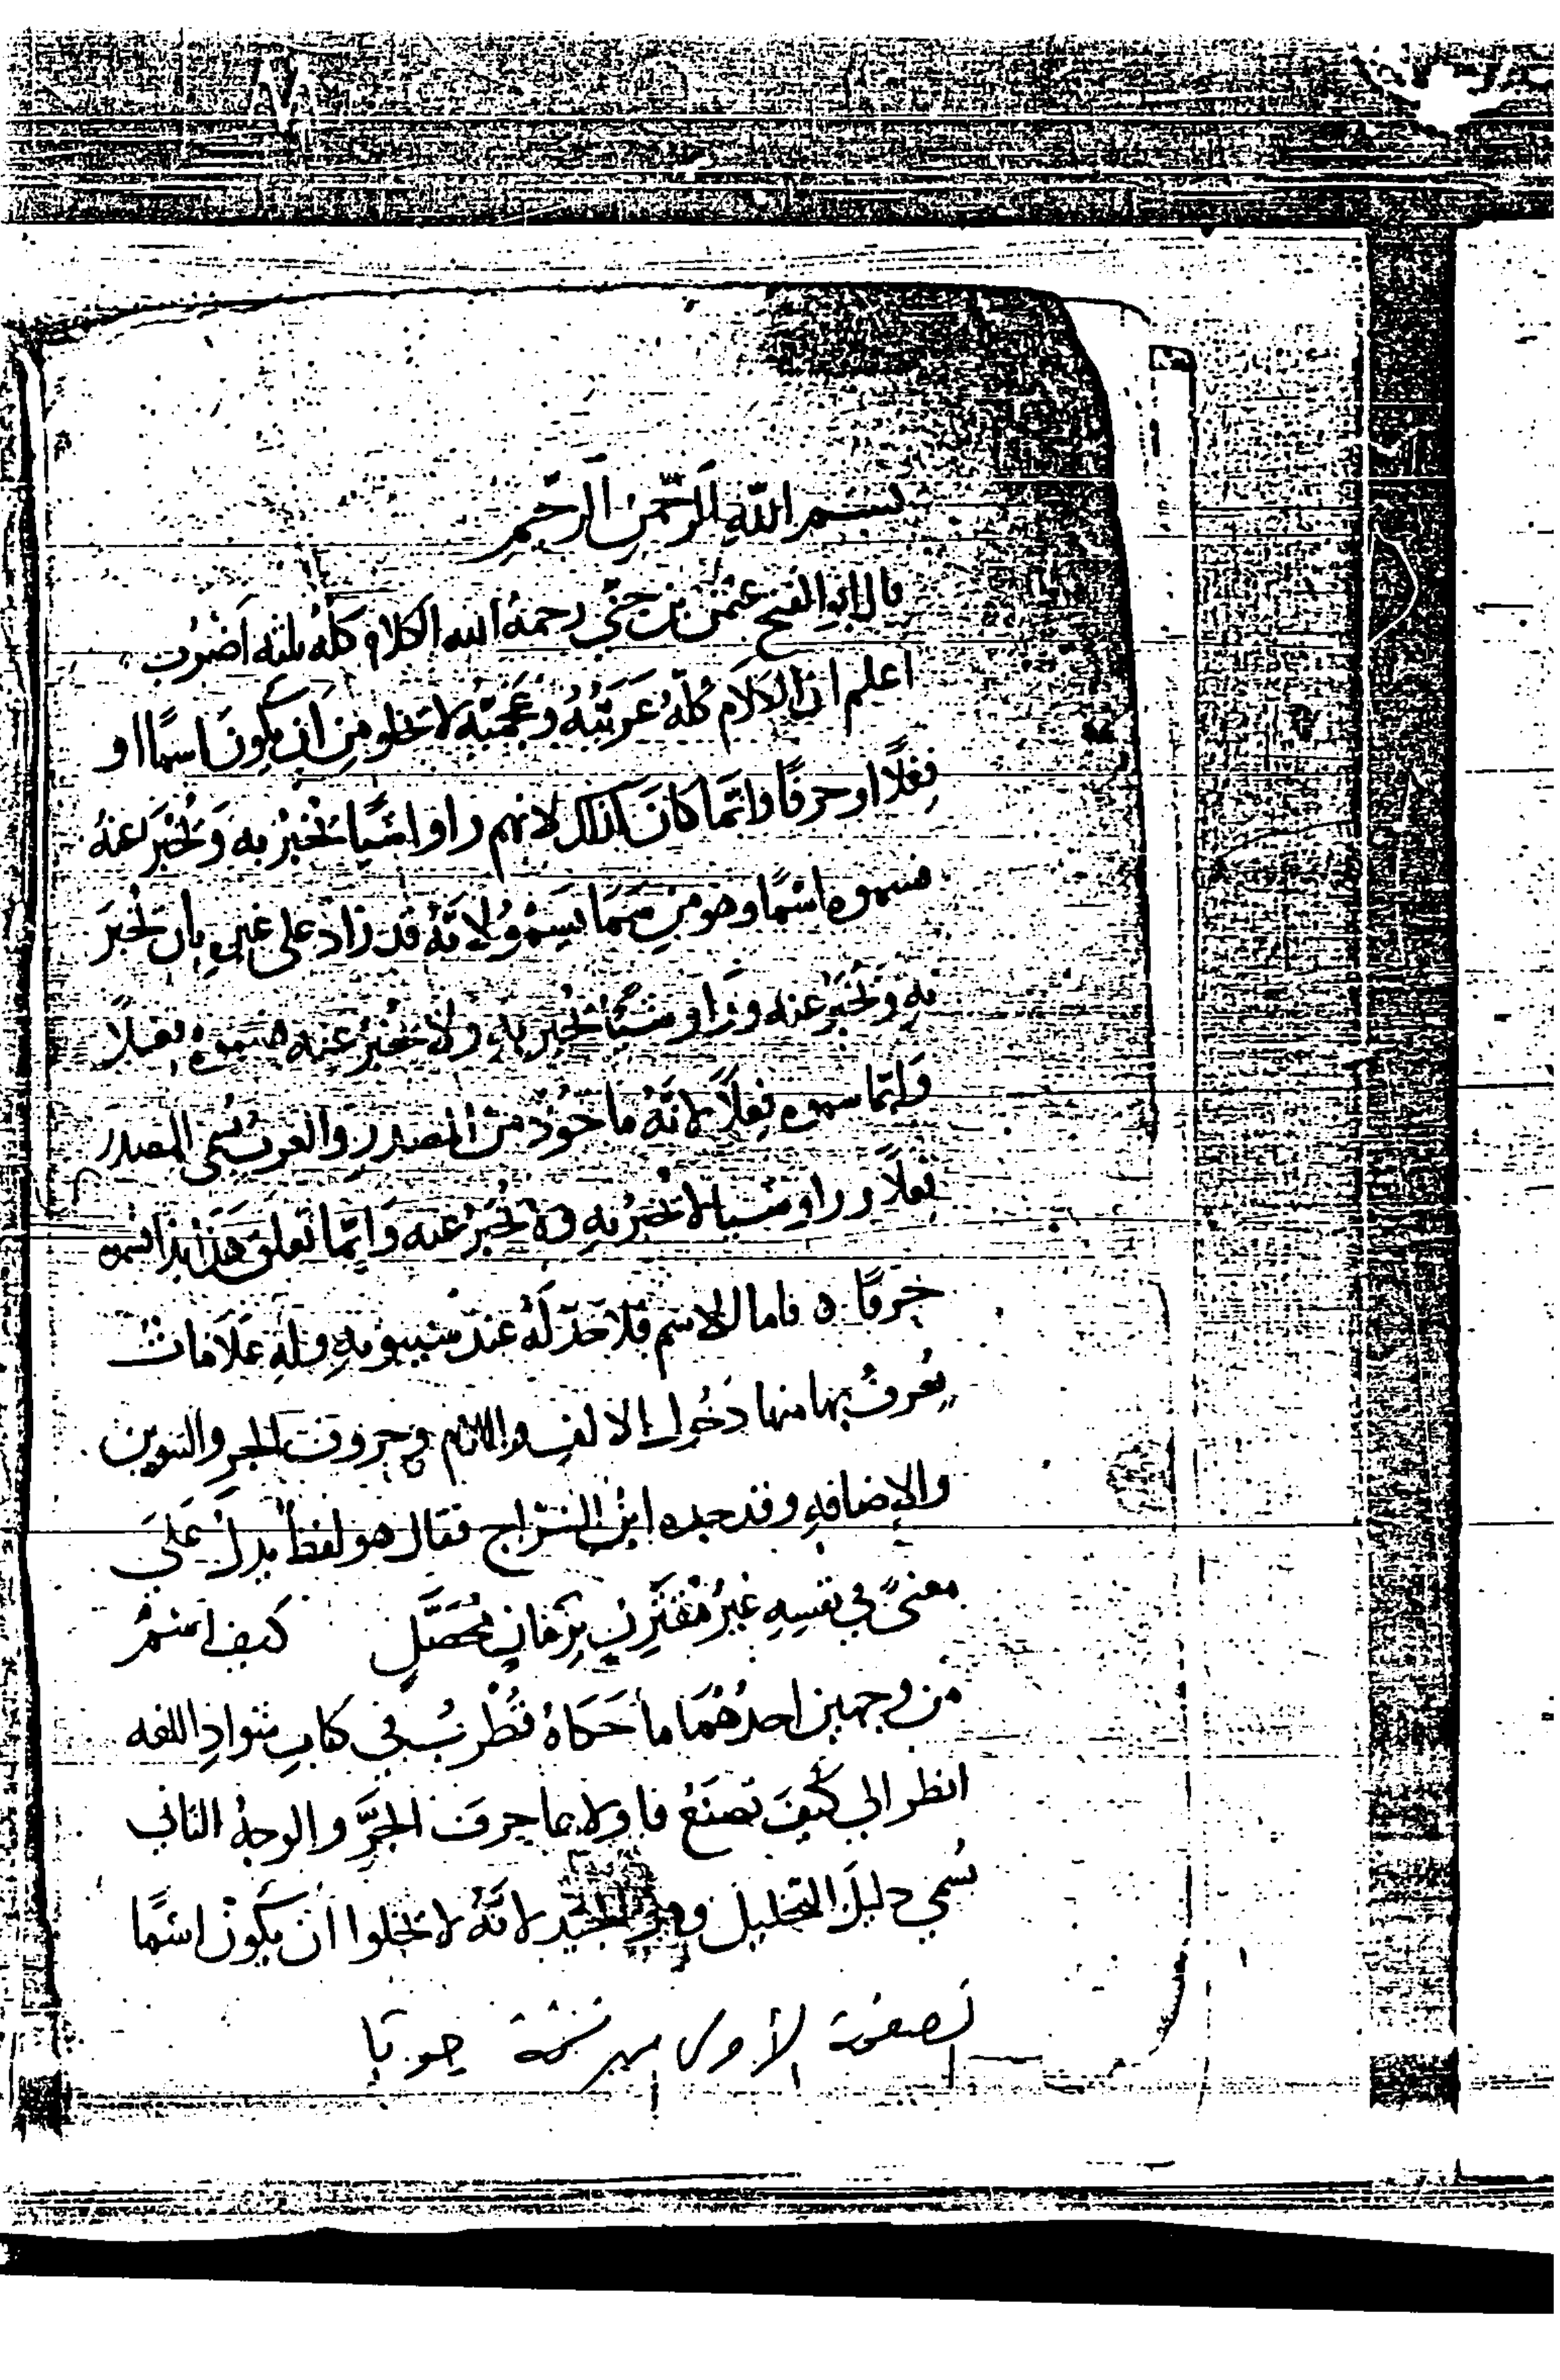 بسم اللّه الرّحمن الرّحيم
قال ابو الفتح عثمن بن جني رحمهُ الله الكلام كلهُ ثلثه اَضرُب
اعلم ان الكلام كلّهُ عَرَبيّهُ وعَجميّه لا يخلو مِن اَن يكونَ اسمًا او
فِعلاً او حرفًا واِنّما كانَ كذلك لانهم راوا اشيا يُخبَرُ به ويُخبَر عَنهُ
فسموه اسمًا وهو من سَمَا يَسمُو لانّهُ قد زادَ على غيرِه بان يُخبَرَ
بهِ ويُخبَر عنه وراو شيئًا يُخبر بهِ ولا يُخبَرُ عنه فسموه فعلاً
وَانّما سموه فِعلاً لانّهُ ماخُوذ من المصدر والعرب تُسمّي المصدر
فعلاً وراو شيا لا يُخبرُ بهِ ولا يُخبَرُ عنه وَانّما تعلق هَذا بذا فسموه
حَرفًا ه فاما الاسم فلا حَدّ لَهُ عند سيبويهِ وله عَلامَاتٌ
يُعرفُ بها منها دَخُول الالف واللام وحروف الجر والتنوين
والاِضافهِ وقد حده ابنُ السَّراج فقال هو لفظٌ يدلّ عَلىَ
معنىً في نفسِهِ غيرُ مُقترِنٍ بِزَمَانٍ مُحَصَّلٍ كيف اسمٌ
من وجهين احدُهُمَا مَا حَكَاهُ قُطْربُ في كتابِ شواذِ اللغه
انظر الي كَيفَ تَصنَعُ فاولاها حرفَ الجرِّ والوجهُ الثاني
يُسمي دليلَ التحليل وهو الجيّد لانّهُ لا يخلوا اَن يكونَ اسمًا
الصفحة الأولى من نسخة جوتا